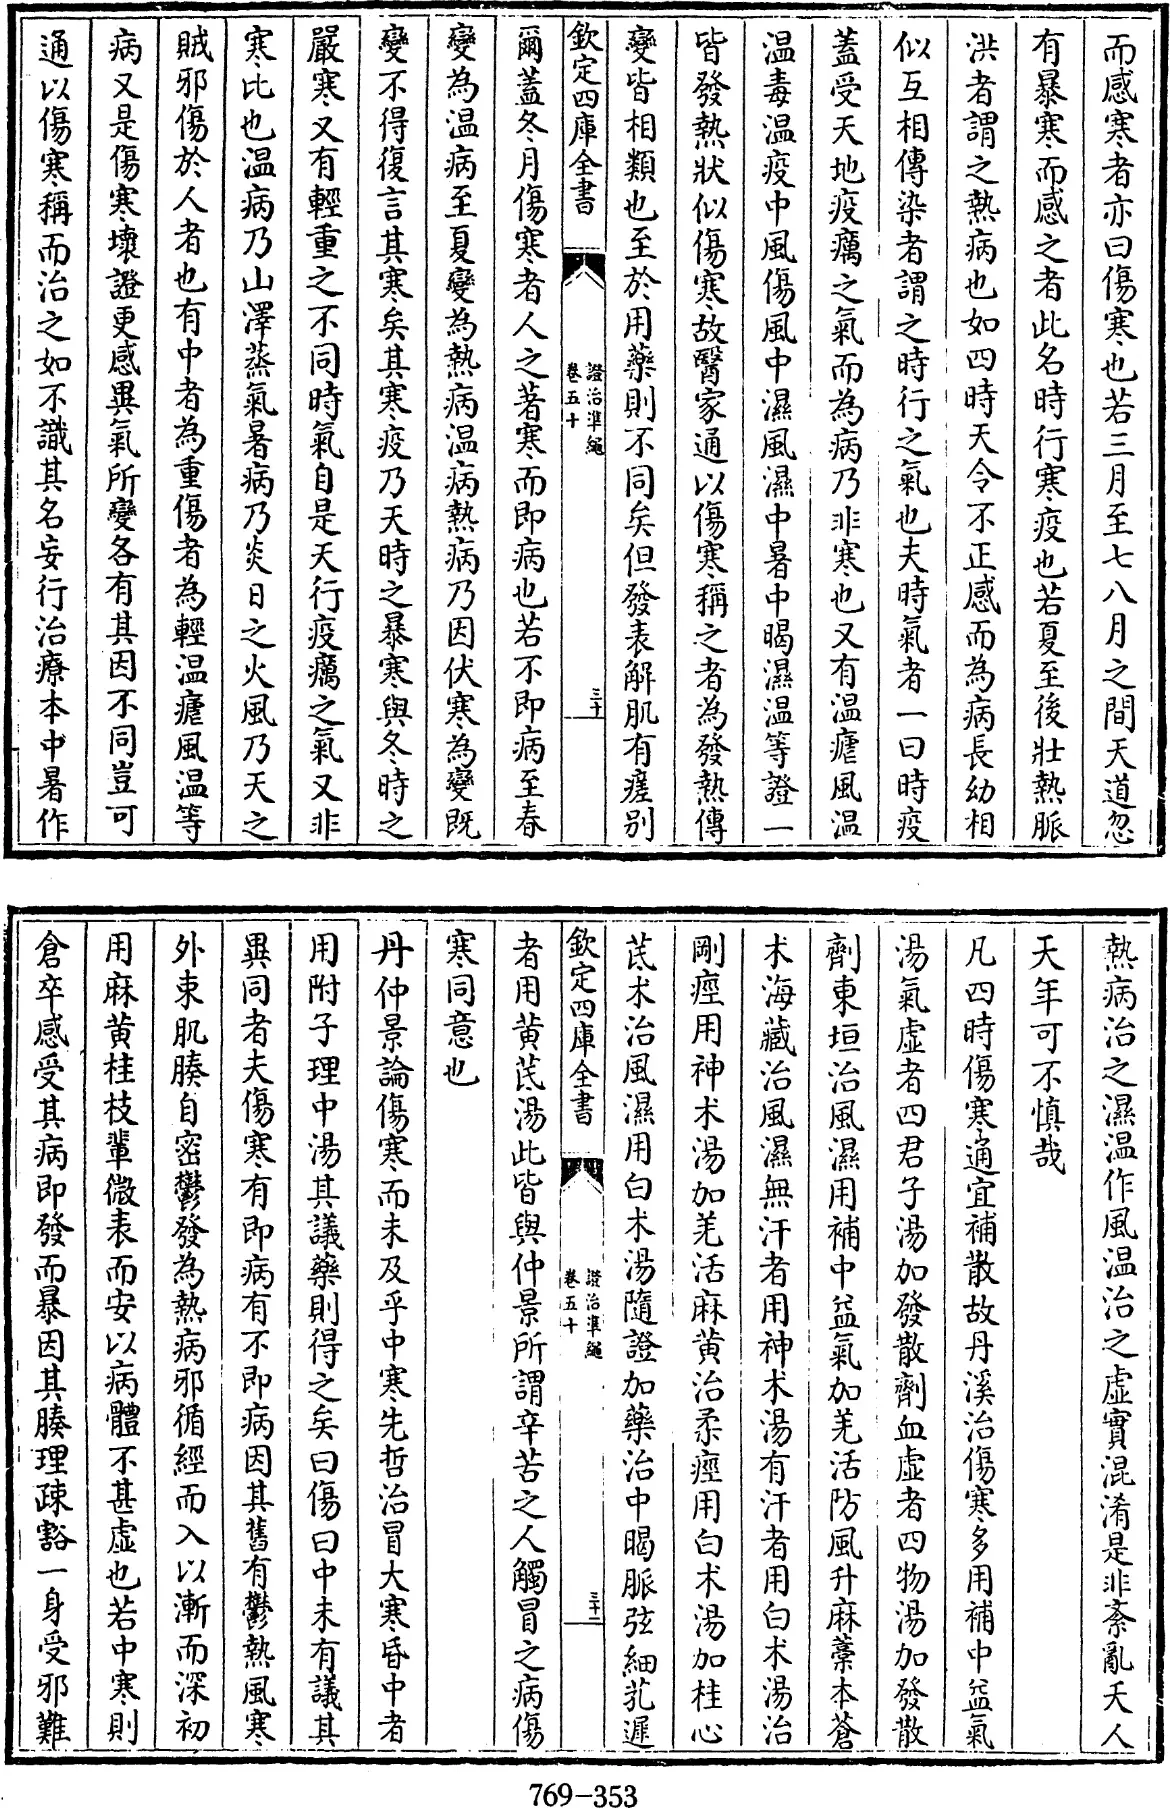 而感寒者亦曰傷寒也若三月至七八月之間天道忽
有暴寒而感之者此名時行寒疫也若夏至後壯熱脈
洪者謂之熱病也如四時天令不正感而為病長幼相
似互相傳染者謂之時行之氣也夫時氣者一曰時疫
蓋受天地疫癘之氣而為病乃非寒也又有温瘧風温
温毒温疫中風傷風中濕風濕中暑中暍濕温等證一
皆發熱狀似傷寒故醫家通以傷寒稱之者為發熱傳
變皆相類也至於用藥則不同矣但發表解肌有差别
欽定四庫全書
證治準繩
卷五十
三十
爾蓋冬月傷寒者人之著寒而即病也若不即病至春
變為温病至夏變為熱病温病熱病乃因伏寒為變既
變不得復言其寒矣其寒疫乃天時之暴寒與冬時之
嚴寒又有輕重之不同時氣自是天行疫癘之氣又非
寒比也温病乃山澤蒸氣暑病乃炎日之火風乃天之
賊邪傷於人者也有中者為重傷者為輕温瘧風温等
病又是傷寒壞證更感異氣所變各有其因不同豈可
通以傷寒稱而治之如不識其名妄行治療本中暑作
熱病治之濕温作風温治之虛實混淆是非紊亂夭人
天年可不慎哉
凡四時傷寒通宜補散故丹溪治傷寒多用補中益氣
湯氣虛者四君子湯加發散劑血虛者四物湯加發散
劑東垣治風濕用補中益氣加羌活防風升麻藁本蒼
术海藏治風濕無汗者用神术湯有汗者用白术湯治
剛痙用神术湯加羌活麻黄治柔痙用白术湯加桂心
芪术治風濕用白术湯隨證加藥治中暍脈弦細芤遲
欽定四庫全書
證治準繩
卷五十
三十一
者用黄芪湯此皆與仲景所謂辛苦之人觸冒之病傷
寒同意也
丹仲景論傷寒而未及乎中寒先哲治冒大寒昏中者
用附子理中湯其議藥則得之矣曰傷曰中未有議其
異同者夫傷寒有即病有不即病因其舊有鬱熱風寒
外束肌腠自密鬱發為熱病邪循經而入以漸而深初
用麻黄桂枝輩微表而安以病體不甚虛也若中寒則
倉卒感受其病即發而暴因其腠理疎豁一身受邪難
769-353